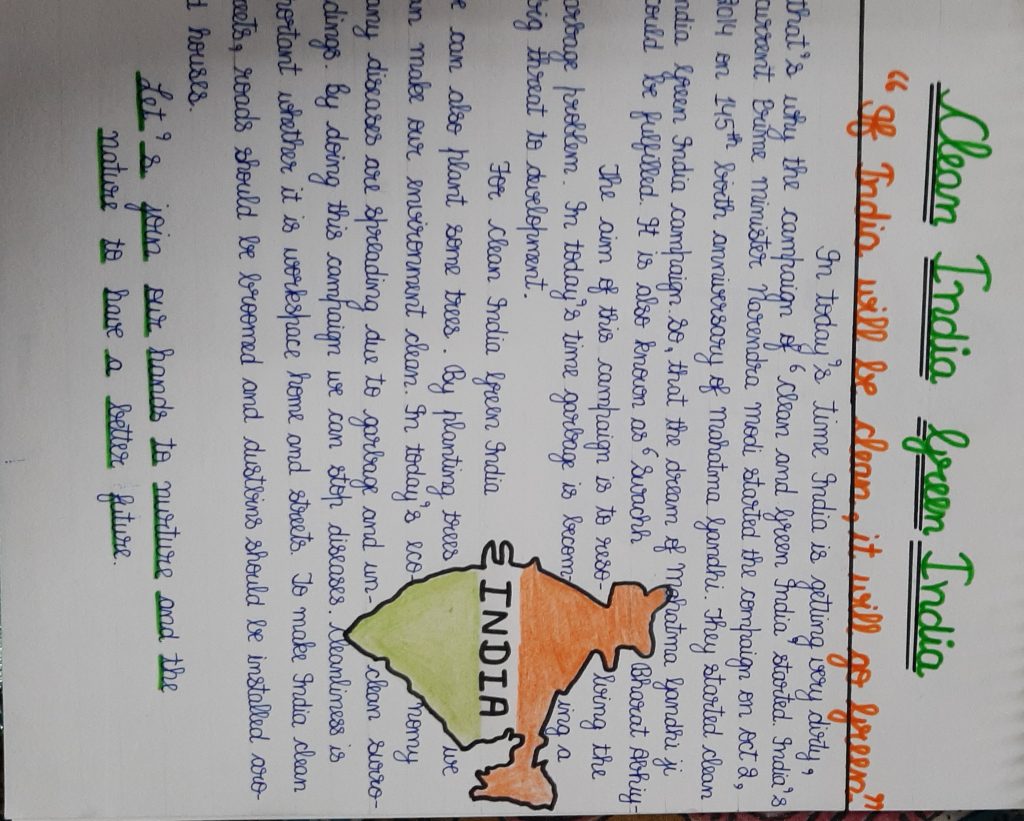 Clean India Green India
“ If India will be clean, it will go Green.”
In today's time India is getting very dirty,
that's why the campaign of ‘clean and Green India’ started. India's
current Prime minister Narendra modi started the campaign on oct 2,
2014 on 145th birth anniversary of mahatma Gandhi. They started clean
India Green India campaign. so, that the dream of mahatma Gandhi ji
could be fulfilled. It is also known as ‘Swachh Bharat Abhiy-
The aim of this campaign is to reso- lving the
arbage problem. In today's time garbage is becom- ing a
big threat to development.
For clean India Green India
e can also plant some trees. By planting trees we
an make our environment clean. In today's eco- nomy
any diseases are spreading due to garbage and un- clean surro-
dings. By doing this campaign we can stop diseases. Cleanliness is
portant whether it is workspace home and streets. To make India clean
eets, roads should be broomed and dustbins should be installed aro-
d houses.
Let's join our hands to nurture and the
nature to have a better future.
INDIA